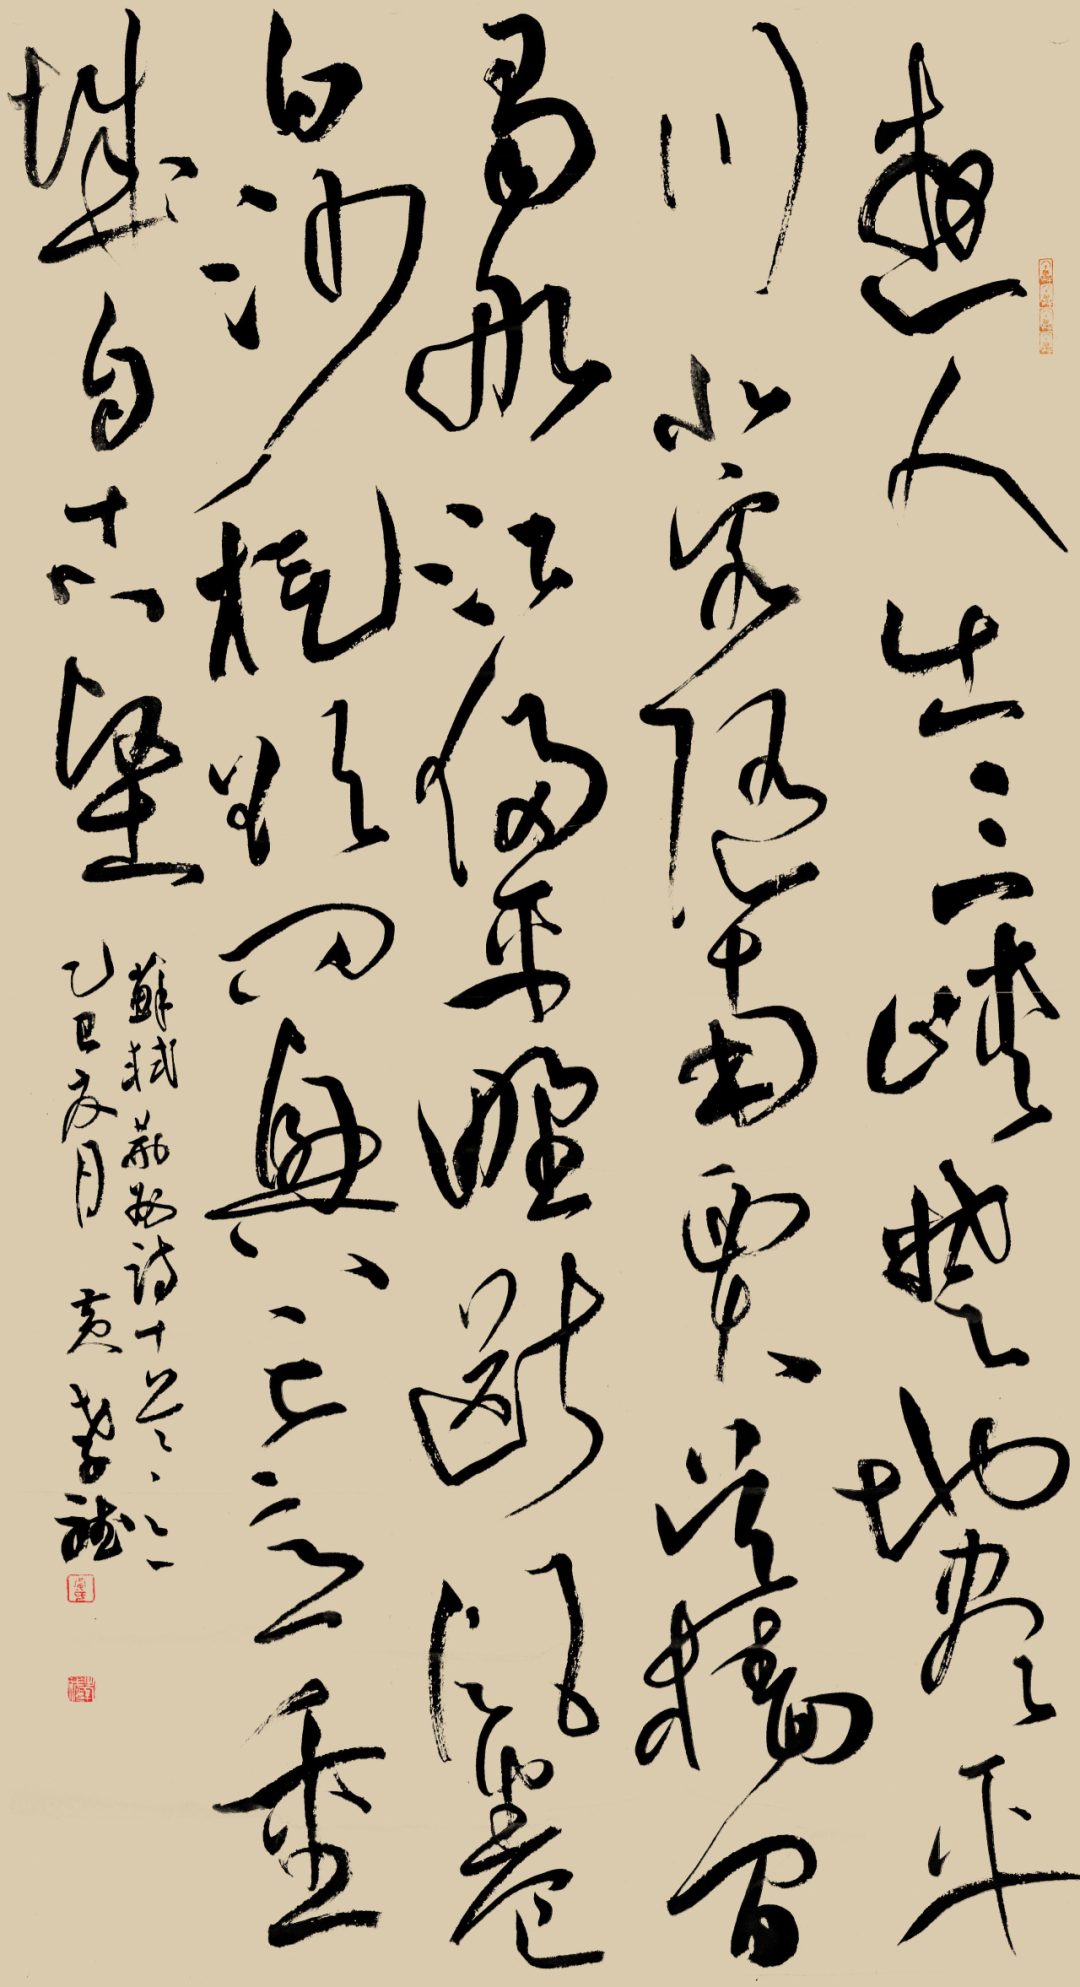 遊人出三峽楚地盡平
川北客隨南賈吳檣間
蜀船江侵平野斷風卷
白沙旋欲問興亡意重
城自古堅
蘇軾荊州詩十首之一
乙巳夏月 黃